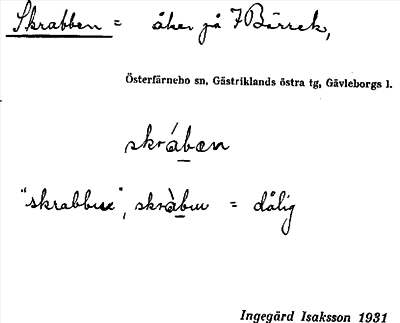 Skrabben = åker på 7 Bärrek,
Österfärnebo sn, Gästriklands östra tg, Gävleborgs l.
skrábæn
"skrabbug", skràbuu = dålig
Ingegärd Isaksson 1931